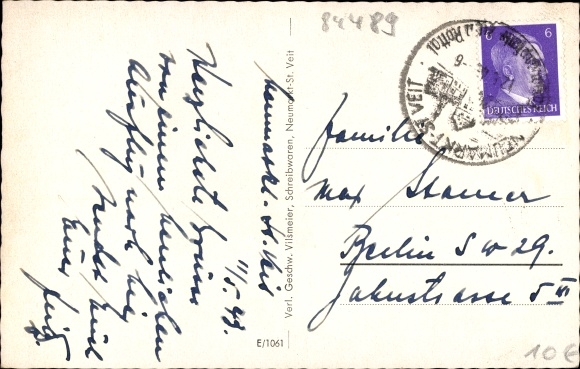 84489
Neumarkt-St. Veit
11/5. 43.
Herzlichste Grüsse
von einem herrlichen
Ausflug nach hier
sendet Euch
Euer
Verl. Geschw. Vilsmeier, Schreibwaren, Neumarkt-St. Veit
E/1061
NEUMARKT-ST. VEIT
6 6
DEUTSCHES REICH
Familie
Max Stamer
Berlin SW 29.
Jahnstrasse 5 III
10€